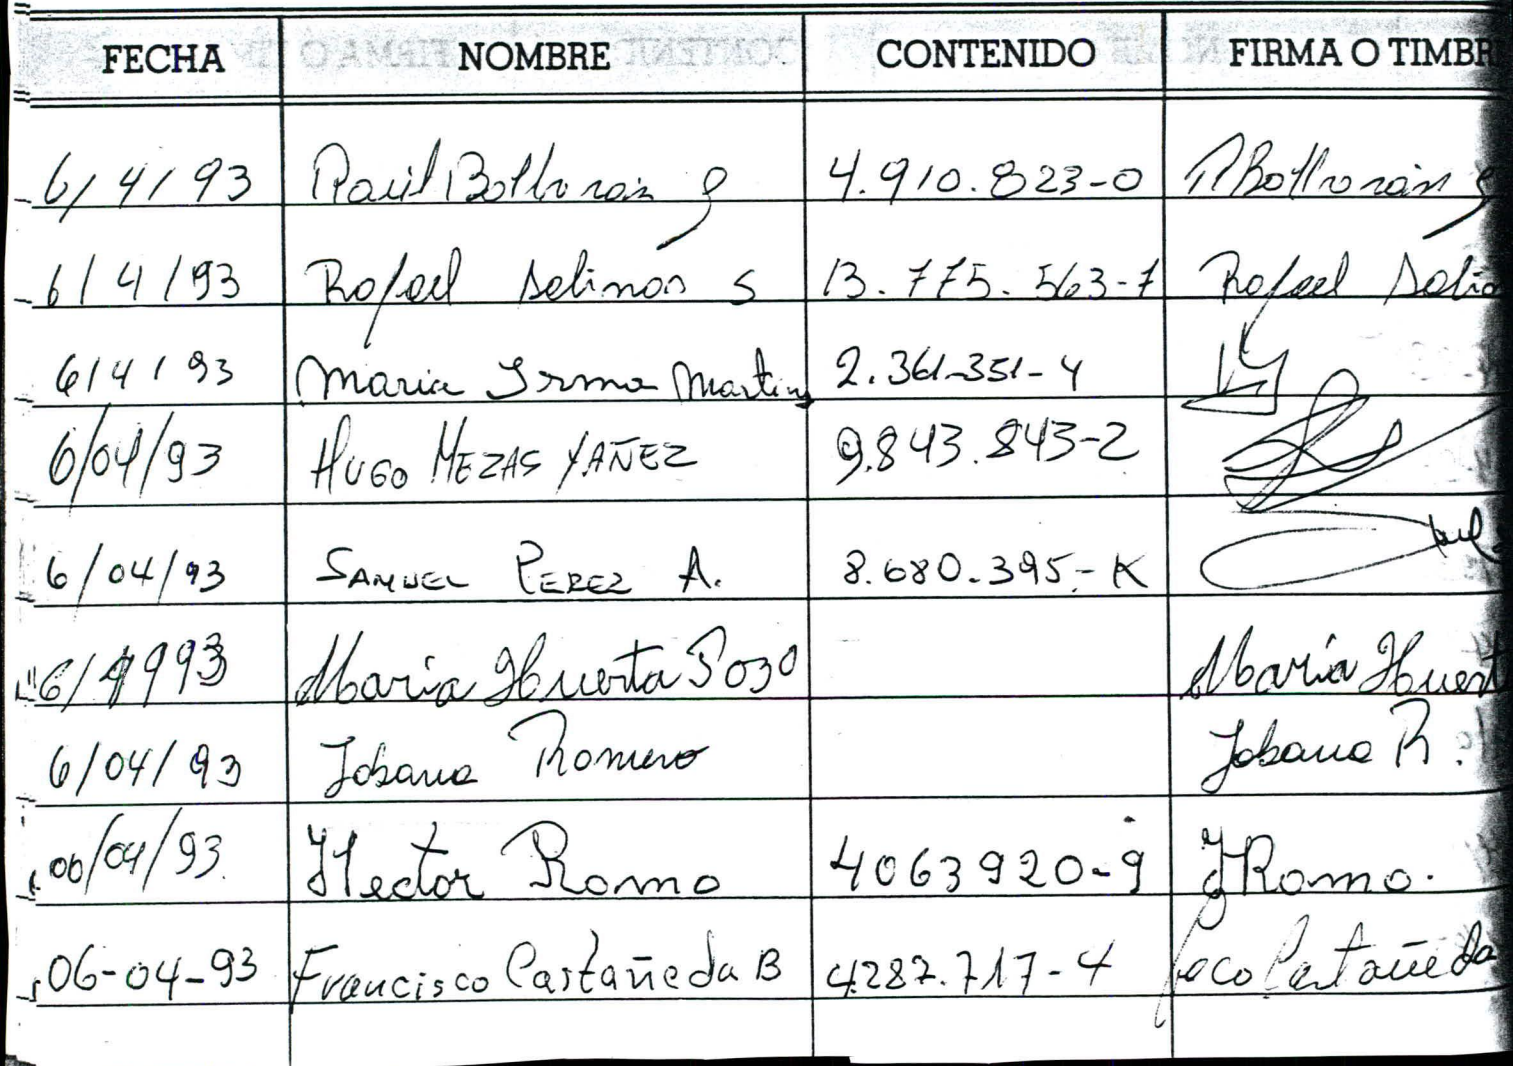 FECHA NOMBRE CONTENIDO FIRMA O TIMBR
6/4/93 Raúl 4.910.823-0
6/4/93 Rafael Salinas S 13.775.563-7 Rafael
6/4/93 Maria Irma Martin 2.361-351-4
6/04/93 HUGO MEZAS YAÑEZ 9.843.843-2
6/04/93 SAMUEL PEREZ A. 8.680.395-K
6/ 93 Maria Huerta Pozo Maria Huert
6/04/93 Johana Romero Johana R.
06/04/93. Hector Romo 4063920-9 HRomo.
06-04-93 Francisco Castañeda B 4287.717-4 Castañeda